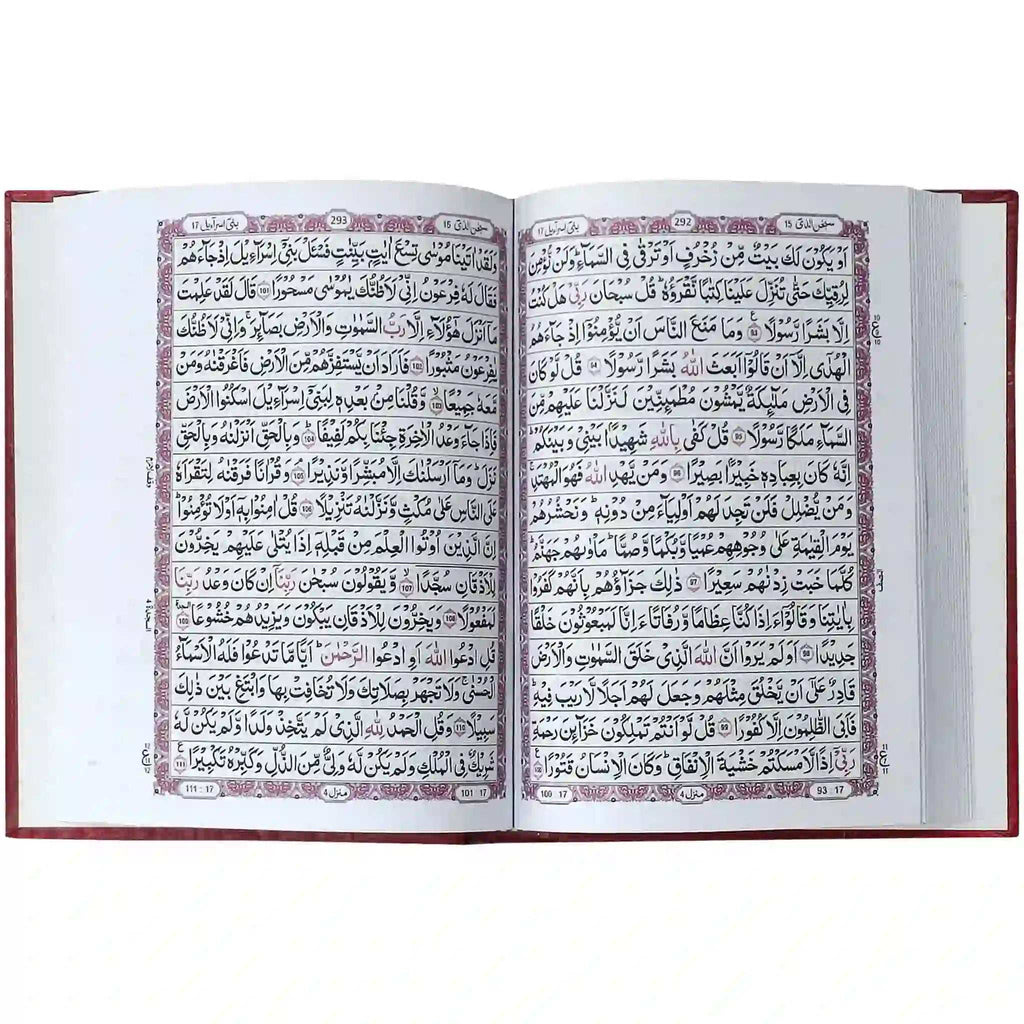 سبحن الذی 15
292
بنی اسرآءیل 17
اَوۡ یَکُوۡنَ لَکَ بَیۡتٌ مِّنۡ زُخۡرُفٍ اَوۡ تَرۡقٰی فِی السَّمَآءِ ؕ وَلَنۡ نُّؤۡمِنَ
لِرُقِیِّکَ حَتّٰی تُنَزِّلَ عَلَیۡنَا کِتٰبًا نَّقۡرَؤُهٗ ؕ قُلۡ سُبۡحَانَ رَبِّیۡ هَلۡ کُنۡتُ
اِلَّا بَشَرًا رَّسُوۡلًا ﴿93﴾ وَمَا مَنَعَ النَّاسَ اَنۡ یُّؤۡمِنُوۡۤا اِذۡ جَآءَهُمُ
الۡهُدٰۤی اِلَّاۤ اَنۡ قَالُوۡۤا اَبَعَثَ اللّٰهُ بَشَرًا رَّسُوۡلًا ﴿94﴾ قُلۡ لَّوۡ کَانَ
فِی الۡاَرۡضِ مَلٰٓئِکَةٌ یَّمۡشُوۡنَ مُطۡمَئِنِّیۡنَ لَنَزَّلۡنَا عَلَیۡهِمۡ مِّنَ
السَّمَآءِ مَلَکًا رَّسُوۡلًا ﴿95﴾ قُلۡ کَفٰی بِاللّٰهِ شَهِیۡدًۢا بَیۡنِیۡ وَبَیۡنَکُمۡ ؕ
اِنَّهٗ کَانَ بِعِبَادِهٖ خَبِیۡرًۢا بَصِیۡرًا ﴿96﴾ وَمَنۡ یَّهۡدِ اللّٰهُ فَهُوَ الۡمُهۡتَدِ ۚ
وَمَنۡ یُّضۡلِلۡ فَلَنۡ تَجِدَ لَهُمۡ اَوۡلِیَآءَ مِنۡ دُوۡنِهٖ ؕ وَنَحۡشُرُهُمۡ
یَوۡمَ الۡقِیٰمَةِ عَلٰی وُجُوۡهِهِمۡ عُمۡیًا وَّبُکۡمًا وَّصُمًّا ؕ مَاۡوٰىهُمۡ جَهَنَّمُ ؕ
کُلَّمَا خَبَتۡ زِدۡنٰهُمۡ سَعِیۡرًا ﴿97﴾ ذٰلِکَ جَزَآؤُهُمۡ بِاَنَّهُمۡ کَفَرُوۡا
بِاٰیٰتِنَا وَقَالُوۡۤا ءَاِذَا کُنَّا عِظَامًا وَّرُفَاتًا ءَاِنَّا لَمَبۡعُوۡثُوۡنَ خَلۡقًا
جَدِیۡدًا ﴿98﴾ اَوَلَمۡ یَرَوۡا اَنَّ اللّٰهَ الَّذِیۡ خَلَقَ السَّمٰوٰتِ وَالۡاَرۡضَ
قَادِرٌ عَلٰۤی اَنۡ یَّخۡلُقَ مِثۡلَهُمۡ وَجَعَلَ لَهُمۡ اَجَلًا لَّا رَیۡبَ فِیۡهِ ؕ
فَاَبَی الظّٰلِمُوۡنَ اِلَّا کُفُوۡرًا ﴿99﴾ قُلۡ لَّوۡ اَنۡتُمۡ تَمۡلِکُوۡنَ خَزَآئِنَ رَحۡمَةِ
رَبِّیۡۤ اِذًا لَّاَمۡسَکۡتُمۡ خَشۡیَةَ الۡاِنۡفَاقِ ؕ وَکَانَ الۡاِنۡسَانُ قَتُوۡرًا ﴿100﴾
93 : 17
منزل 4
100 : 17
سبحن الذی 15
293
بنی اسرآءیل 17
وَلَقَدۡ اٰتَیۡنَا مُوۡسٰی تِسۡعَ اٰیٰتٍۭ بَیِّنٰتٍ فَسۡـَٔلۡ بَنِیۡۤ اِسۡرَآءِیۡلَ اِذۡ جَآءَهُمۡ
فَقَالَ لَهٗ فِرۡعَوۡنُ اِنِّیۡ لَاَظُنُّکَ یٰمُوۡسٰی مَسۡحُوۡرًا ﴿101﴾ قَالَ لَقَدۡ عَلِمۡتَ
مَاۤ اَنۡزَلَ هٰۤؤُلَآءِ اِلَّا رَبُّ السَّمٰوٰتِ وَالۡاَرۡضِ بَصَآئِرَ ۚ وَاِنِّیۡ لَاَظُنُّکَ
یٰفِرۡعَوۡنُ مَثۡبُوۡرًا ﴿102﴾ فَاَرَادَ اَنۡ یَّسۡتَفِزَّهُمۡ مِّنَ الۡاَرۡضِ فَاَغۡرَقۡنٰهُ وَمَنۡ
مَّعَهٗ جَمِیۡعًا ﴿103﴾ وَّقُلۡنَا مِنۡۢ بَعۡدِهٖ لِبَنِیۡۤ اِسۡرَآءِیۡلَ اسۡکُنُوا الۡاَرۡضَ
فَاِذَا جَآءَ وَعۡدُ الۡاٰخِرَةِ جِئۡنَا بِکُمۡ لَفِیۡفًا ﴿104﴾ وَبِالۡحَقِّ اَنۡزَلۡنٰهُ وَبِالۡحَقِّ
نَزَلَ ؕ وَمَاۤ اَرۡسَلۡنٰکَ اِلَّا مُبَشِّرًا وَّنَذِیۡرًا ﴿105﴾ وَقُرۡاٰنًا فَرَقۡنٰهُ لِتَقۡرَاَهٗ
عَلَی النَّاسِ عَلٰی مُکۡثٍ وَّنَزَّلۡنٰهُ تَنۡزِیۡلًا ﴿106﴾ قُلۡ اٰمِنُوۡا بِهٖۤ اَوۡ لَا تُؤۡمِنُوۡا ؕ
اِنَّ الَّذِیۡنَ اُوۡتُوا الۡعِلۡمَ مِنۡ قَبۡلِهٖۤ اِذَا یُتۡلٰی عَلَیۡهِمۡ یَخِرُّوۡنَ
لِلۡاَذۡقَانِ سُجَّدًا ﴿107﴾ وَّیَقُوۡلُوۡنَ سُبۡحٰنَ رَبِّنَاۤ اِنۡ کَانَ وَعۡدُ رَبِّنَا
لَمَفۡعُوۡلًا ﴿108﴾ وَیَخِرُّوۡنَ لِلۡاَذۡقَانِ یَبۡکُوۡنَ وَیَزِیۡدُهُمۡ خُشُوۡعًا ﴿109﴾
قُلِ ادۡعُوا اللّٰهَ اَوِ ادۡعُوا الرَّحۡمٰنَ ؕ اَیًّا مَّا تَدۡعُوۡا فَلَهُ الۡاَسۡمَآءُ
الۡحُسۡنٰی ۚ وَلَا تَجۡهَرۡ بِصَلَاتِکَ وَلَا تُخَافِتۡ بِهَا وَابۡتَغِ بَیۡنَ ذٰلِکَ
سَبِیۡلًا ﴿110﴾ وَقُلِ الۡحَمۡدُ لِلّٰهِ الَّذِیۡ لَمۡ یَتَّخِذۡ وَلَدًا وَّلَمۡ یَکُنۡ لَّهٗ
شَرِیۡکٌ فِی الۡمُلۡکِ وَلَمۡ یَکُنۡ لَّهٗ وَلِیٌّ مِّنَ الذُّلِّ وَکَبِّرۡهُ تَکۡبِیۡرًا ﴿111﴾
101 : 17
منزل 4
111 : 17